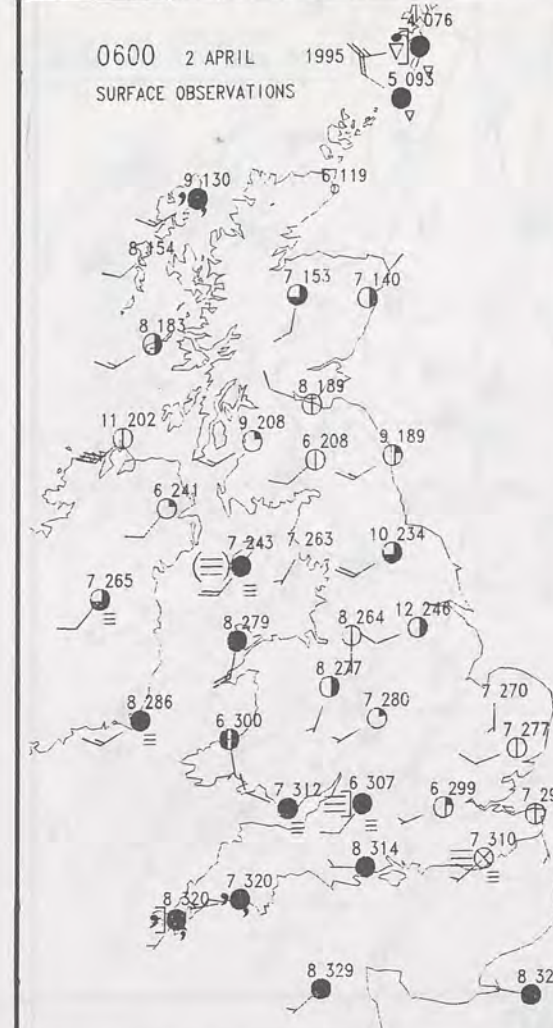 4 076
0600 2 APRIL 1995
5 093
SURFACE OBSERVATIONS
6 119
9 130
8 154
7 153
7 140
8 183
8 189
11 202
9 208
6 208
9 189
6 241
7 243
7 263
10 234
7 265
8 279
8 264
12 246
8 277
7 270
8 286
6 300
7 280
7 277
7 312
6 307
6 299
7 29
7 310
8 314
8 320
7 320
8 329
8 32